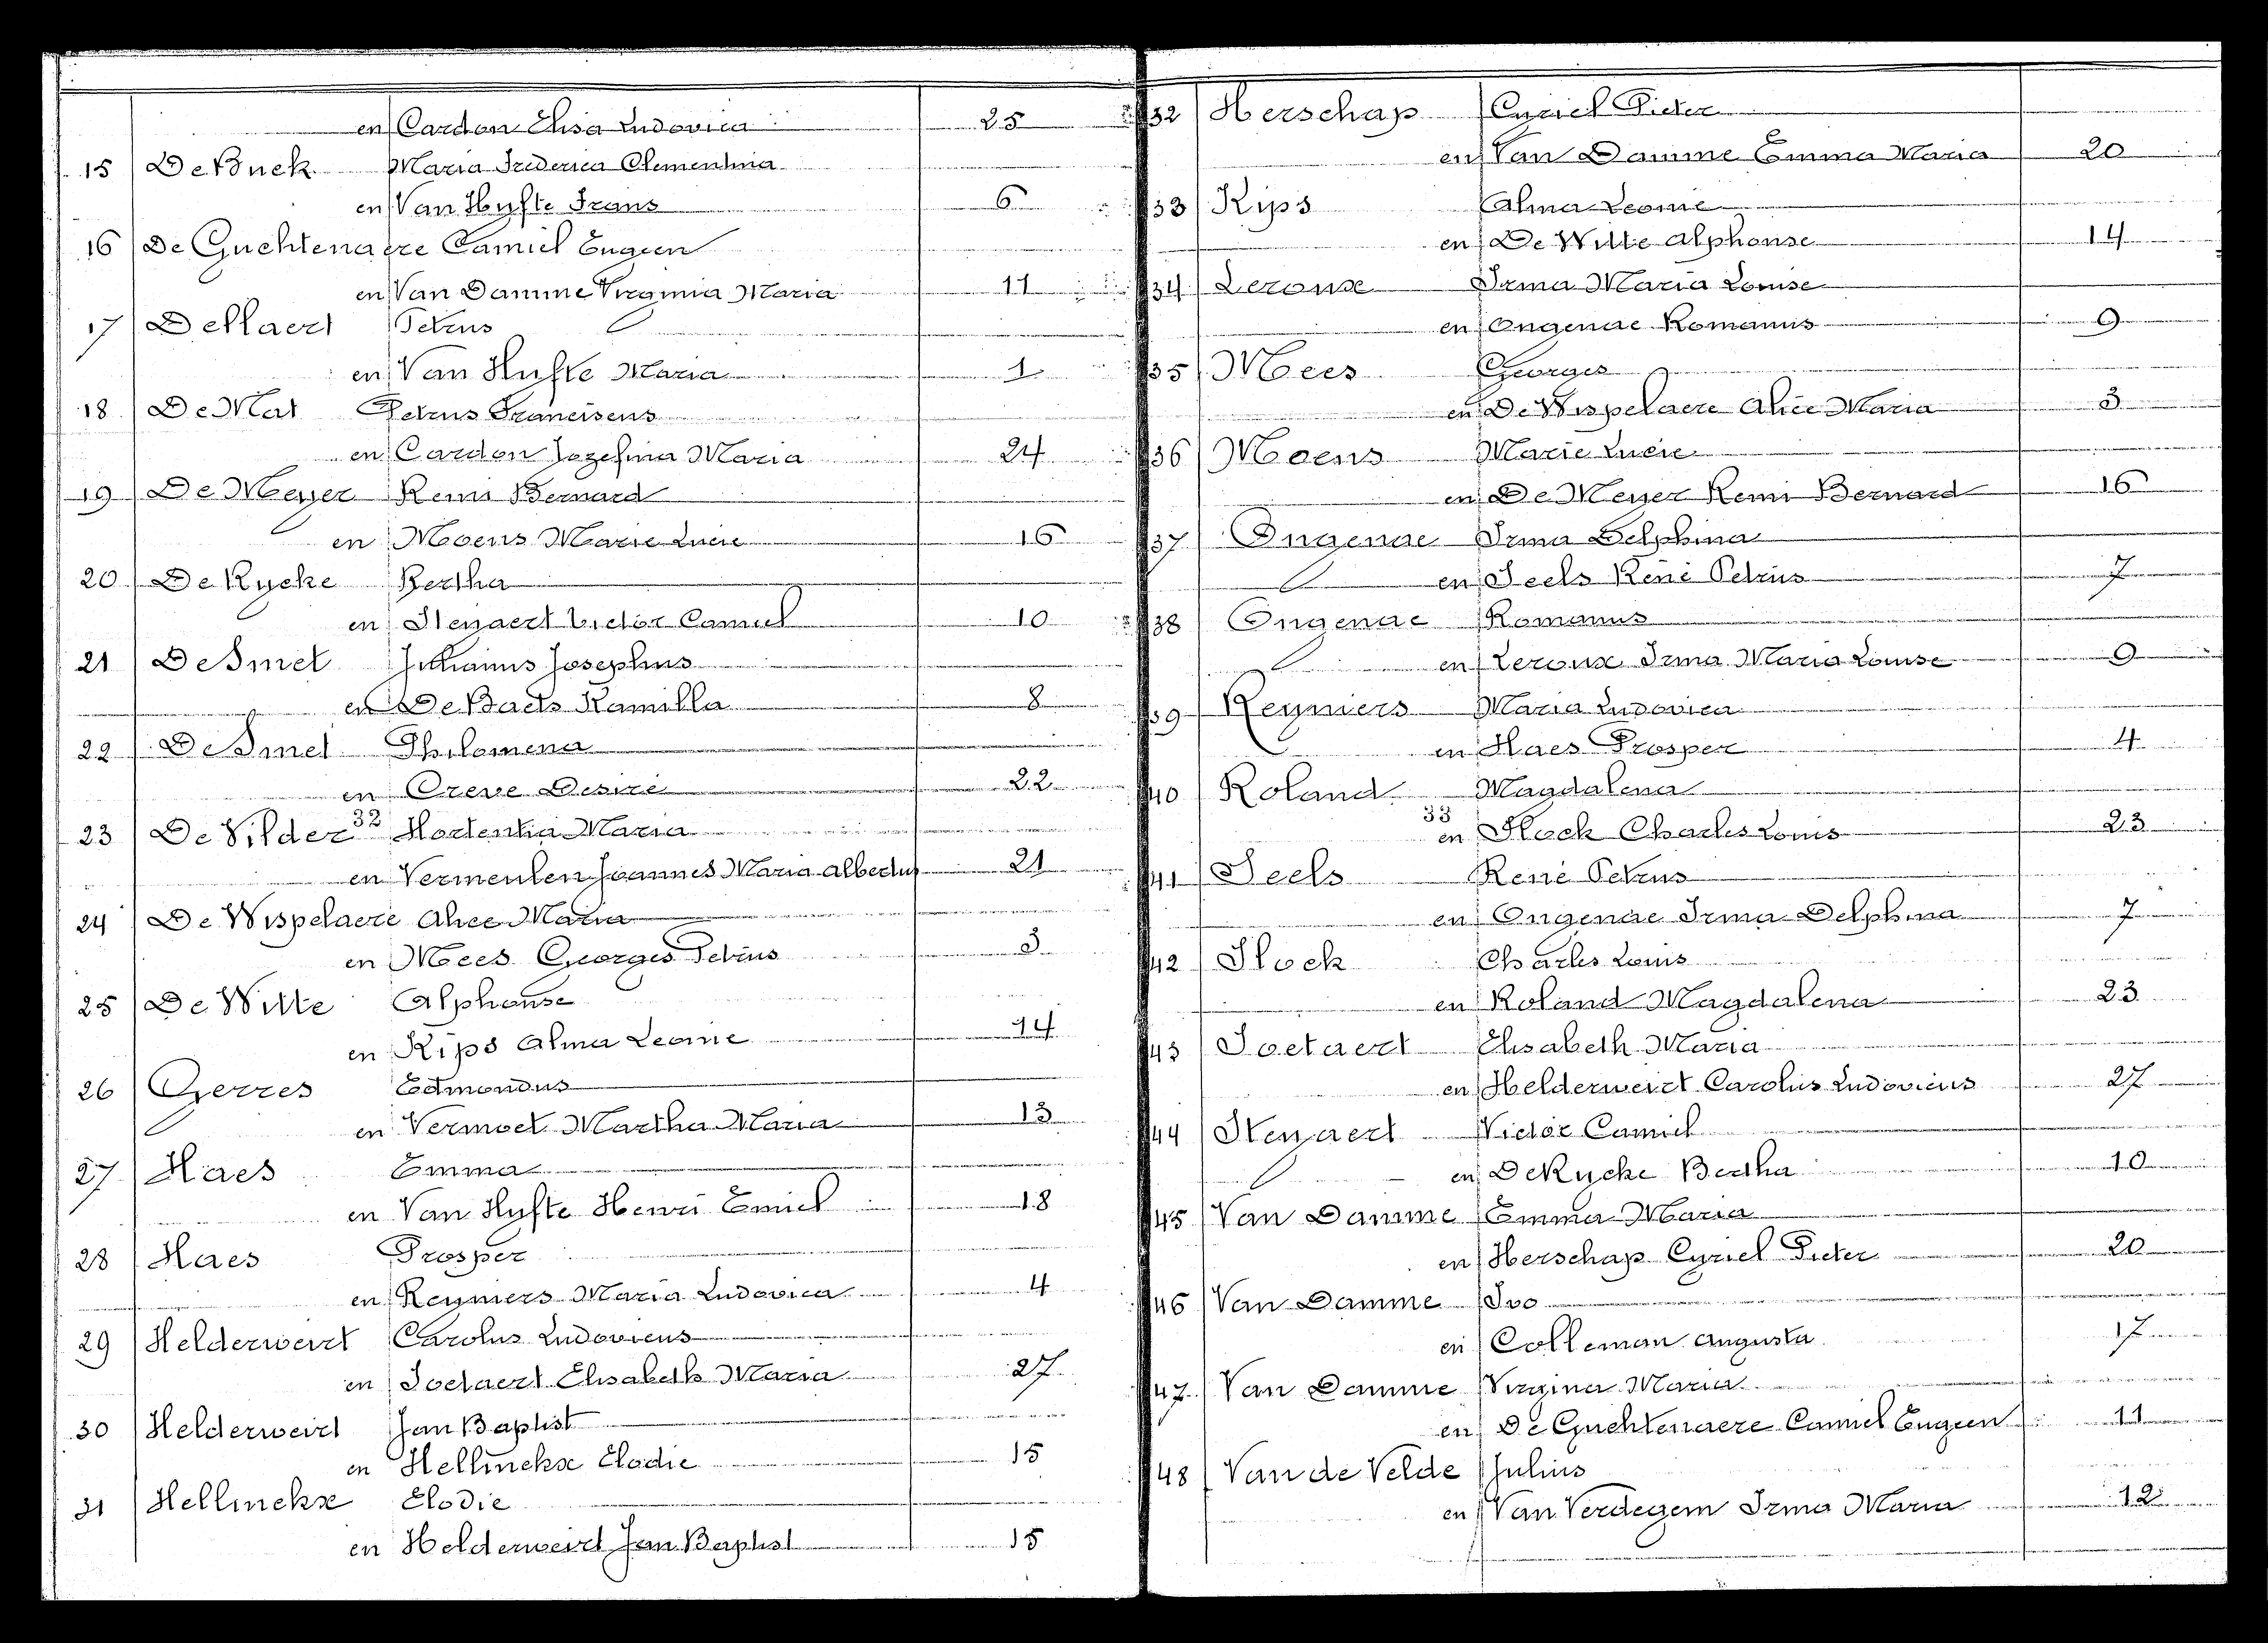 en Cardon Elisa Ludovica 25
15 De Buck Maria Frederica Clementina
en Van Hufte Frans 6
16 De Guchtenaere Camiel Eugeen
en Van Damme Virginia Maria 11
17 De Maert Petrus
en Van Hufte Maria 1
18 De Mat Petrus Franciscus
en Cardon Jozefina Maria 24
19 De Meyer Remi Bernard
en Moens Marie Lucie 16
20 De Rycke Bertha
en Steyaert Victor Camiel 10
21 De Smet Julianus Josephus
en De Baets Kamilla 8
22 De Smet Philomena
en Creve Desiré 22
23 De Vilder 32 Hortentia Maria
en Vermeulen Joannes Maria Albertus 21
24 De Wispelaere Alice Maria
en Mees Georges Petrus 3
25 De Witte Alphonse
en Kips Alma Leonie 14
26 Gerres Edmondus
en Vermoet Martha Maria 13
27 Haes Emma
en Van Hufte Henri Emiel 18
28 Haes Prosper
en Reyniers Maria Ludovica 4
29 Helderweirt Carolus Ludovicus
en Soetaert Elisabeth Maria 27
30 Helderweirt Jan Baptist
en Hellinckx Elodie 15
31 Hellinckx Elodie
en Helderweirt Jan Baptist 15
32 Herschap Cyriel Pieter
en Van Damme Emma Maria 20
33 Kips Alma Leonie
en De Witte Alphonse 14
34 Leroux Irma Maria Louise
en Ongenae Romanus 9
35 Mees Georges
en De Wispelaere Alice Maria 3
36 Moens Marie Lucie
en De Meyer Remi Bernard 16
37 Ongenae Irma Delphina
en Seels René Petrus 7
38 Ongenae Romanus
en Leroux Irma Maria Louise 9
39 Reyniers Maria Ludovica
en Haes Prosper 4
40 Roland Magdalena
33
en Slock Charles Louis 23
41 Seels René Petrus
en Ongenae Irma Delphina 7
42 Slock Charles Louis
en Roland Magdalena 23
43 Soetaert Elisabeth Maria
en Helderweirt Carolus Ludovicus 27
44 Steyaert Victor Camiel
en De Rycke Bertha 10
45 Van Damme Emma Maria
en Herschap Cyriel Pieter 20
46 Van Damme Ivo
en Colleman Augusta 17
47 Van Damme Virginia Maria
en De Guchtenaere Camiel Eugeen 11
48 Van de Velde Julius
en Van Verdegem Irma Maria 12